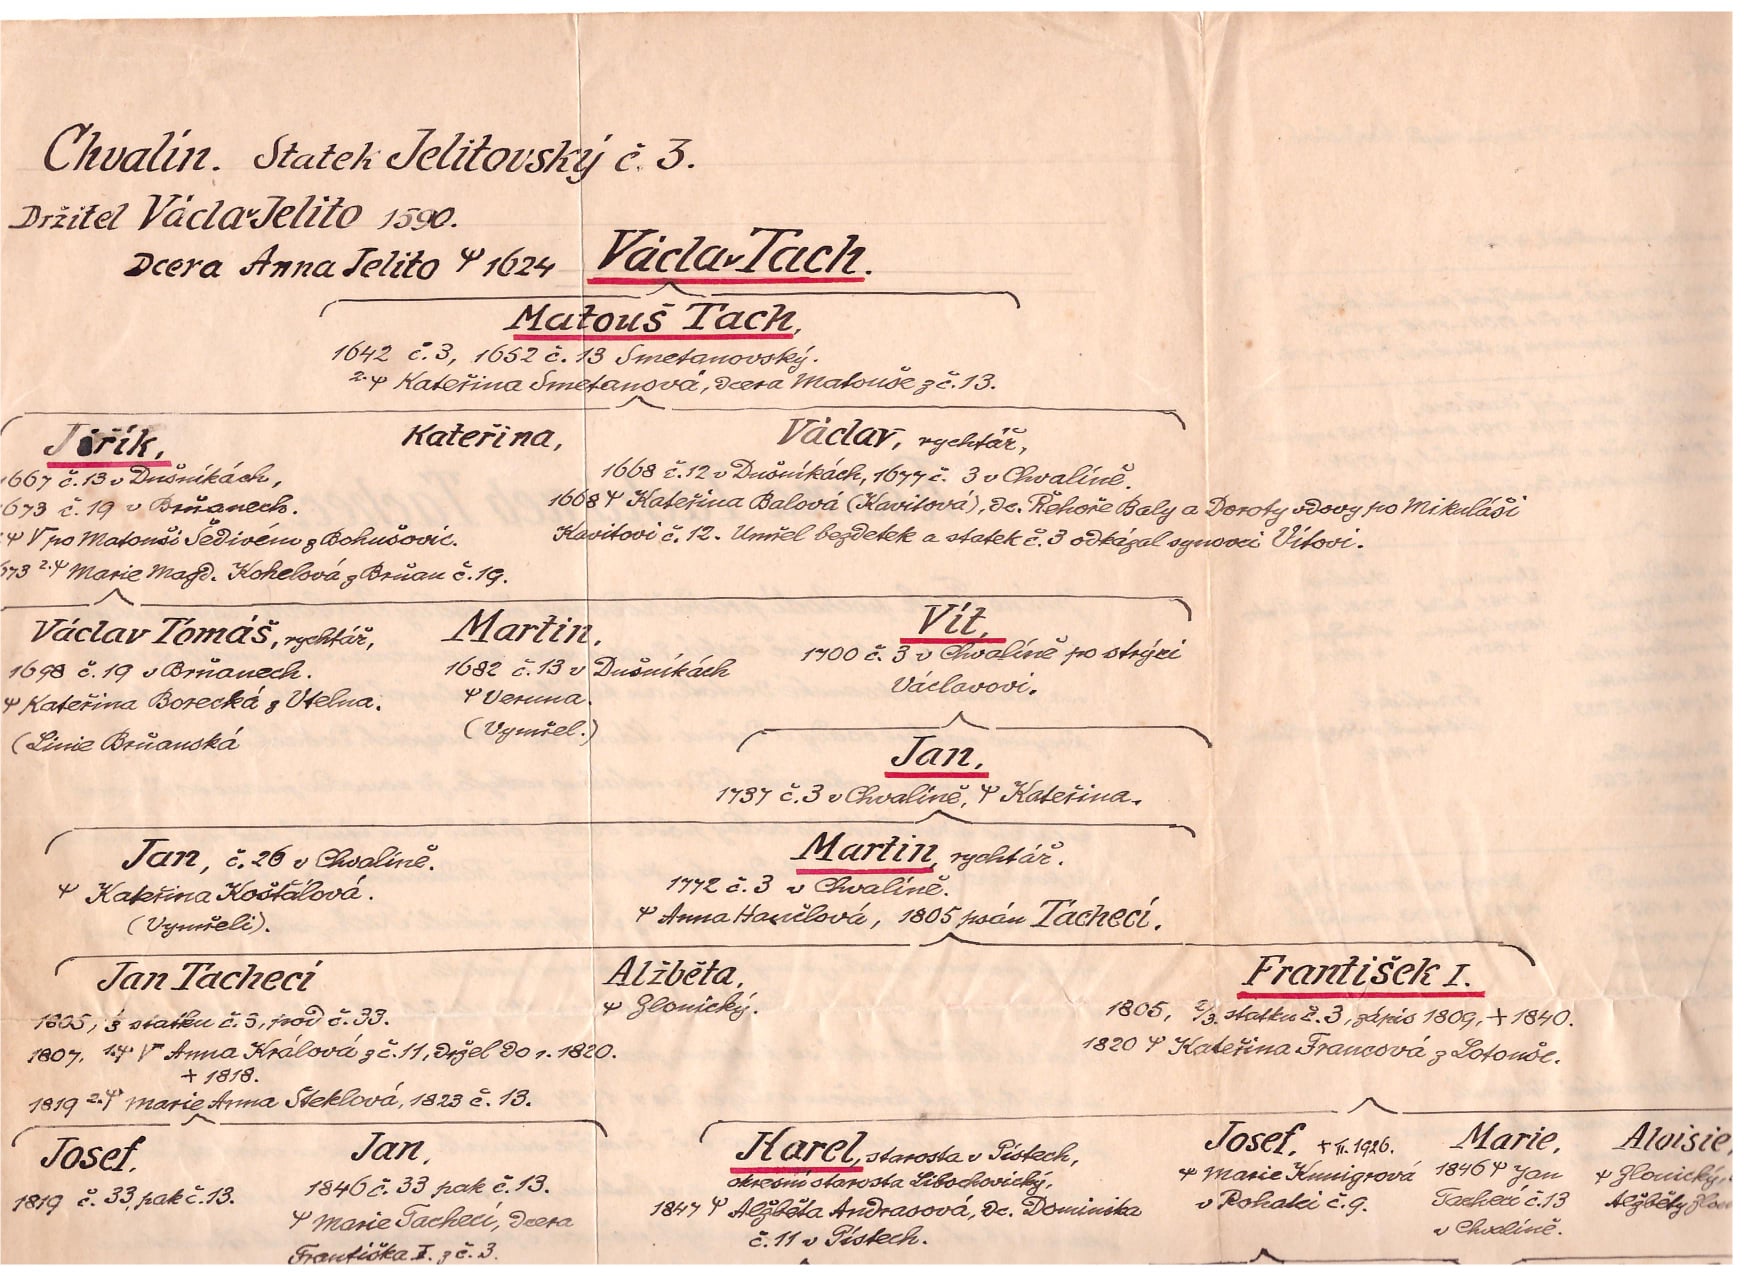 Chvalín. Statek Jelitovský č. 3.
Držitel Václav Jelito 1590.
Dcera Anna Jelito Ψ 1624 Václav Tach.
Matouš Tach,
1642 č. 3, 1652 č. 13 Smetanovský.
2. Ψ Kateřina Smetanová, dcera Matouše z č. 13.
Jiřík,
1667 č. 13 v Dušníkách,
1673 č. 19 v Brňanech.
Ψ V po Matouši Šedivém z Bohušovic.
673 2. Ψ Marie Magd. Kohelová z Brňan č. 19.
Kateřina,
Václav, rychtář,
1668 č. 12 v Dušníkách, 1677 č. 3 v Chvalíně.
1668 Ψ Kateřina Balová (Kavitová), dc. Řehoře Baly a Doroty vdovy po Mikuláši
Kavitovi č. 12. Umřel bezdetek a statek č. 3 odkázal synovci Vítovi.
Václav Tomáš, rychtář,
1698 č. 19 v Brňanech.
Ψ Kateřina Borecká z Utelna.
(Linie Brňanská
Martin,
1682 č. 13 v Dušníkách
Ψ Veruna.
(Vymřel.)
Vít,
1700 č. 3 v Chvalíně po strýci
Václavovi.
Jan,
1737 č. 3 v Chvalíně, Ψ Kateřina.
Jan, č. 26 v Chvalíně.
Ψ Kateřina Košťálová.
(Vymřeli).
Martin, rychtář.
1772 č. 3 v Chvalíně.
Ψ Anna Hančlová, 1805 psán Tachecí.
Jan Tachecí
1805, 1/3 statku č. 3, pod č. 33.
1807, 1. Ψ V Anna Králová z č. 11, držel do r. 1820.
+ 1818.
1819 2. Ψ Marie Anna Šteklová, 1823 č. 13.
Alžběta,
Ψ Zlonický.
František I.
1805, 2/3 statku č. 3, zápis 1809, + 1840.
1820 Ψ Kateřina Francová z Lotouše.
Josef,
1819 č. 33 pak č. 13.
Jan,
1846 č. 33 pak č. 13.
Ψ Marie Tachecí, dcera
Františka I. z č. 3.
Karel, starosta v Pístech,
okresní starosta Libochovický,
1847 Ψ Alžběta Andrasová, dc. Dominika
č. 11 v Pístech.
Josef, + II. 1926.
Ψ Marie Kunigrová
v Rohatci č. 9.
Marie,
1846 Ψ Jan
Tachecí č. 13
v Chvalíně.
Aloisie,
Ψ Zlonický,
Alžběty